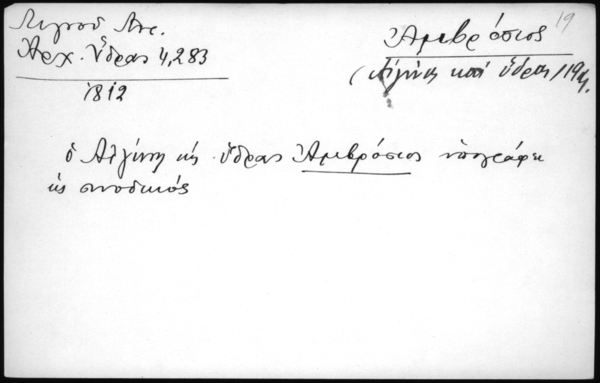 Λιγνού Αντ.
Ἀρχ. Ὕδρας 4,283
1812
19
Ἀμβρόσιος
(Αἰγίνης καὶ Ὕδρας)
ὁ Αἰγίνης κ Ὕδρας Ἀμβρόσιος ὑπογράφει
ὡς συνοδικός